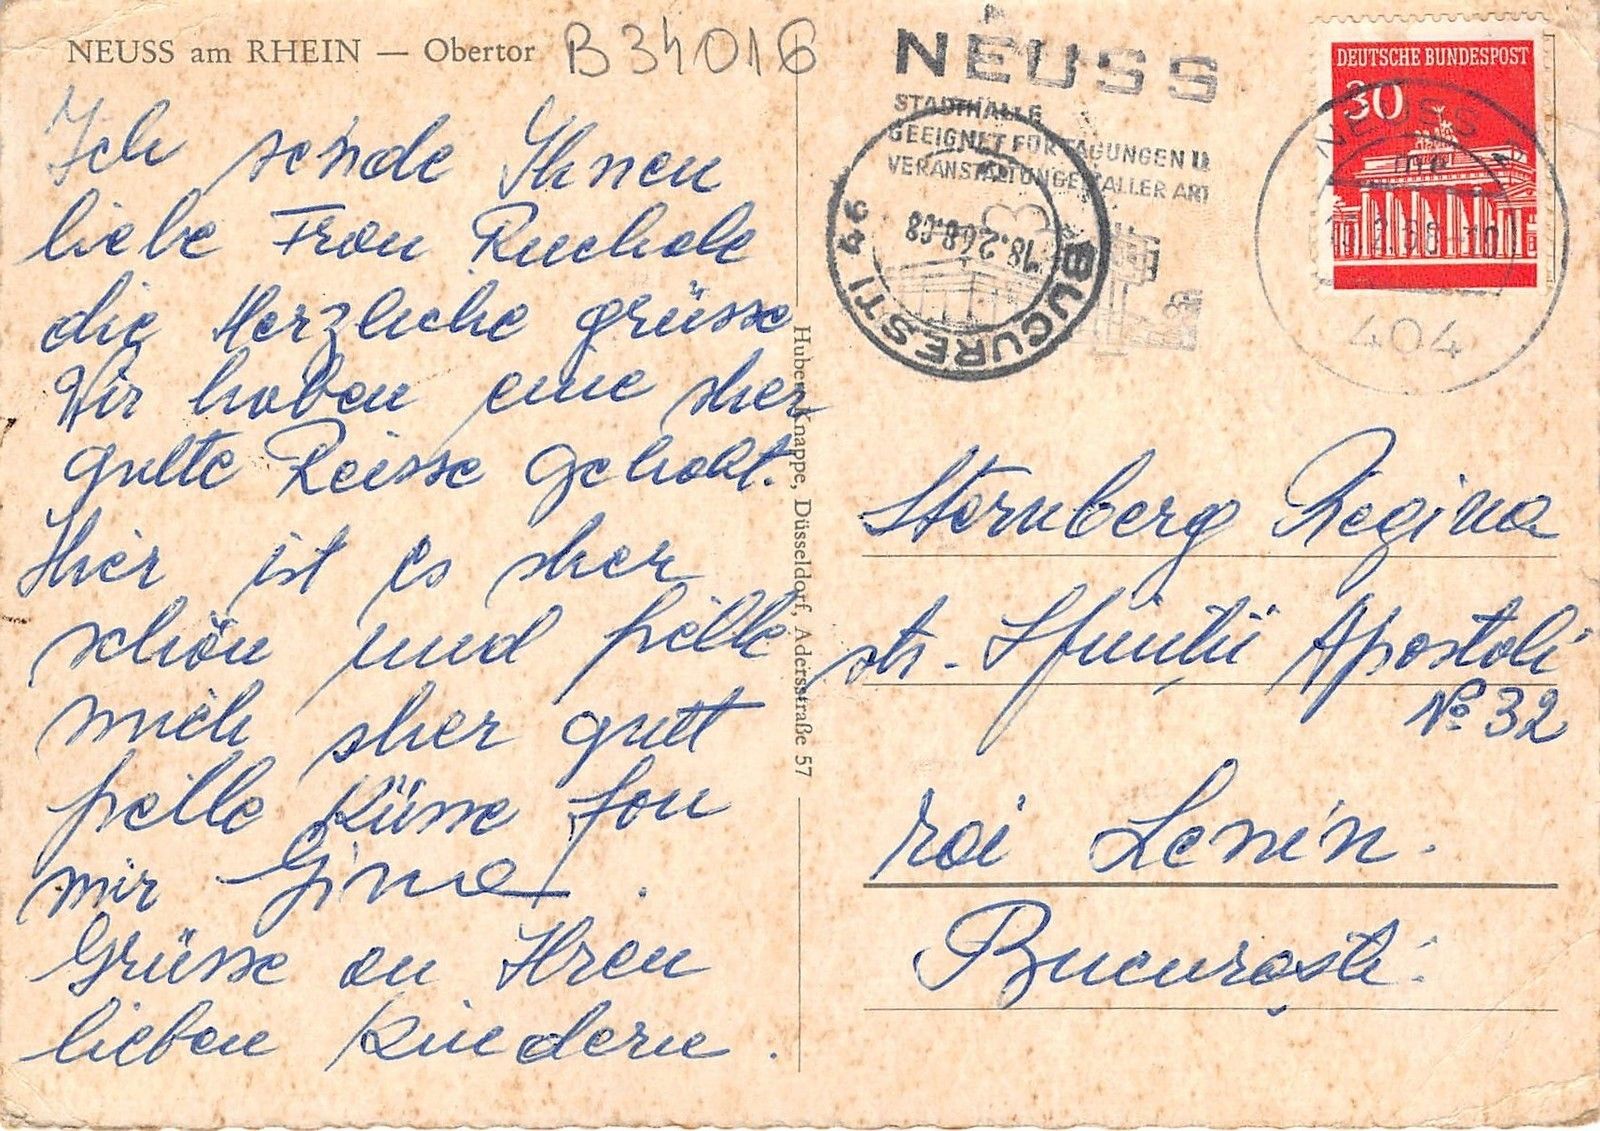 NEUSS am RHEIN — Obertor
B34016
Ich sende Ihnen
liebe Frau
die Herzliche grüsse
Wir haben eine sher
gutte Reisse gehabt.
Hier ist es sher
schön und fielle
mich sher gutt
fielle Küsse fon
mir Gina.
Grüsse an Ihren
lieben Kiedern.
Huber Knappe, Düsseldorf, Adersstraße 57
NEUSS
STADTHALLE
GEEIGNET FÜR TAGUNGEN U
VERANSTALTUNGEN ALLER ART
BUCURESTI 46
18.2.68
DEUTSCHE BUNDESPOST
30
NEUSS
404
Sternberg Regina
str. Sfinții Apostoli
No 32
rai Lenin.
București.